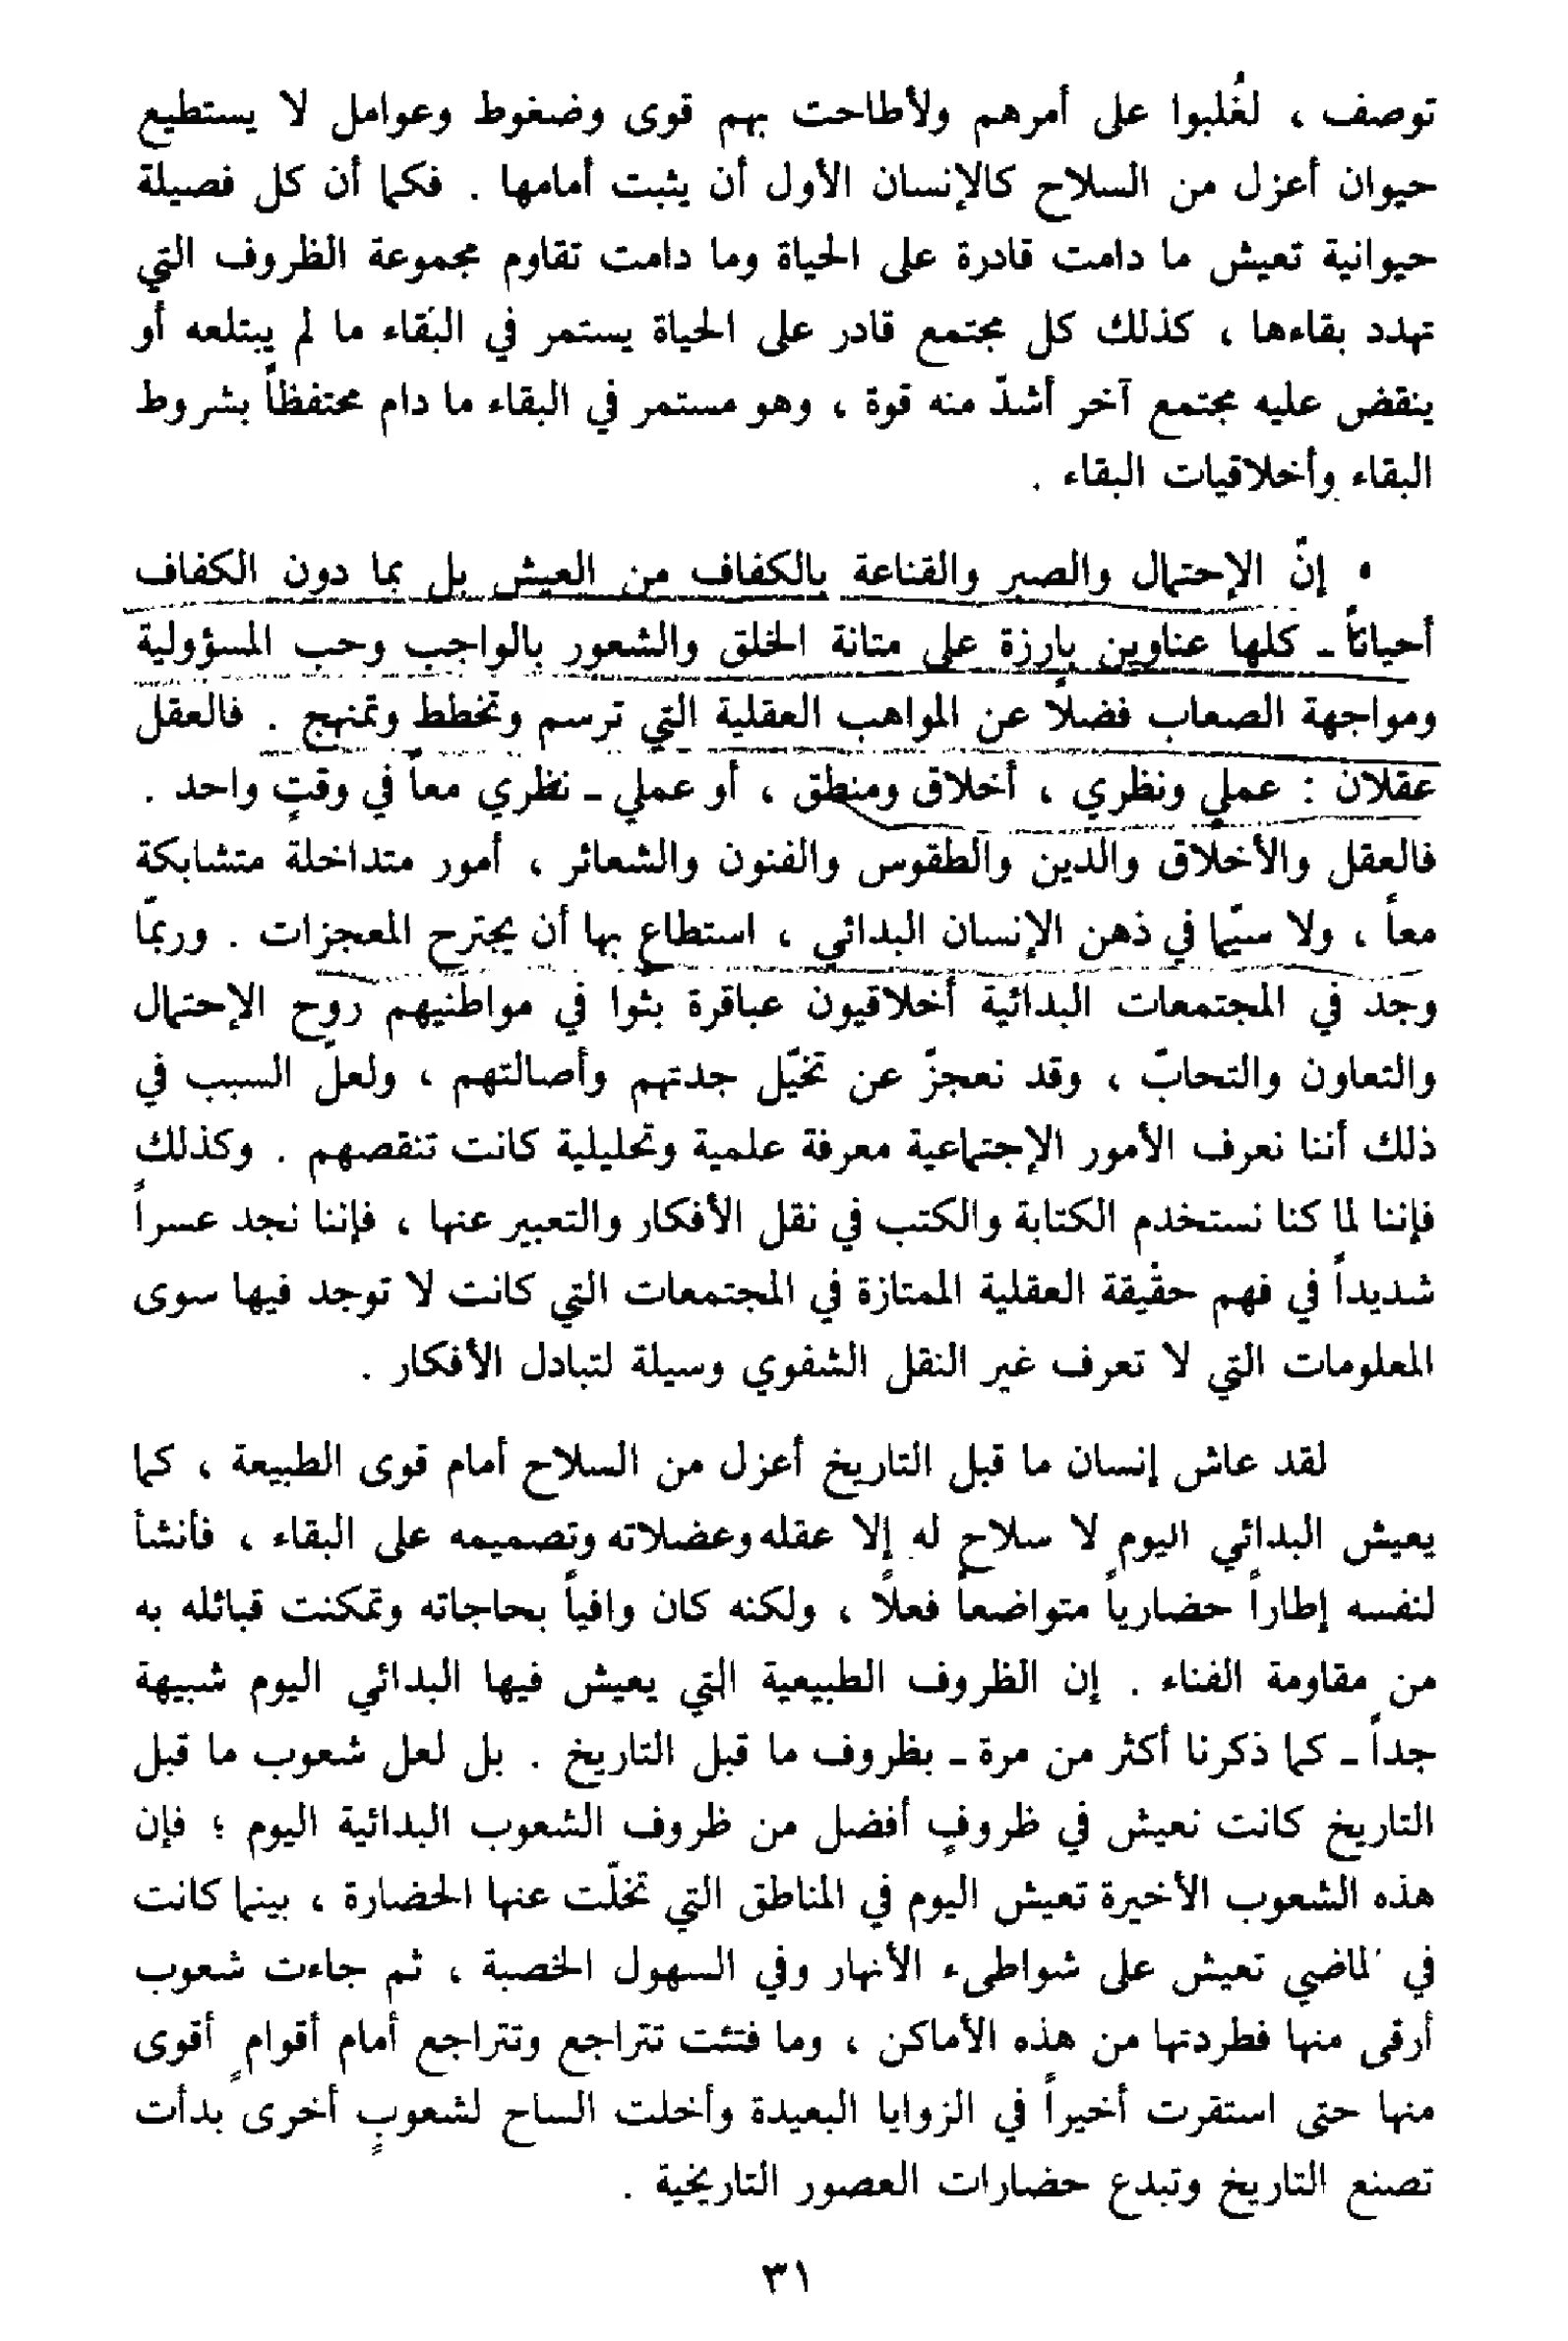 توصف ، لغُلبوا على أمرهم ولأطاحت بهم قوى وضغوط وعوامل لا يستطيع
حيوان أعزل من السلاح كالإنسان الأول أن يثبت أمامها . فكما أن كل فصيلة
حيوانية تعيش ما دامت قادرة على الحياة وما دامت تقاوم مجموعة الظروف التي
تهدد بقاءها ، كذلك كل مجتمع قادر على الحياة يستمر في البقاء ما لم يبتلعه أو
ينقض عليه مجتمع آخر أشدّ منه قوة ، وهو مستمر في البقاء ما دام محتفظاً بشروط
البقاء وأخلاقيات البقاء .
• إنّ الإحتمال والصبر والقناعة بالكفاف من العيش بل بما دون الكفاف
أحياناً ـ كلها عناوين بارزة على متانة الخلق والشعور بالواجب وحب المسؤولية
ومواجهة الصعاب فضلاً عن المواهب العقلية التي ترسم وتخطط وتمنهج . فالعقل
عقلان : عملي ونظري ، أخلاق ومنطق ، أو عملي ـ نظري معاً في وقتٍ واحد .
فالعقل والأخلاق والدين والطقوس والفنون والشعائر ، أمور متداخلة متشابكة
معاً ، ولا سيّما في ذهن الإنسان البدائي ، استطاع بها أن يجترح المعجزات . وربمّا
وجد في المجتمعات البدائية أخلاقيون عباقرة بثوا في مواطنيهم روح الإحتمال
والتعاون والتحابّ ، وقد نعجزّ عن تخيّل جدتهم وأصالتهم ، ولعلّ السبب في
ذلك أننا نعرف الأمور الإجتماعية معرفة علمية وتحليلية كانت تنقصهم . وكذلك
فإننا لما كنا نستخدم الكتابة والكتب في نقل الأفكار والتعبير عنها ، فإننا نجد عسراً
شديداً في فهم حقيقة العقلية الممتازة في المجتمعات التي كانت لا توجد فيها سوى
المعلومات التي لا تعرف غير النقل الشفوي وسيلة لتبادل الأفكار .
لقد عاش إنسان ما قبل التاريخ أعزل من السلاح أمام قوى الطبيعة ، كما
يعيش البدائي اليوم لا سلاح له إلا عقله وعضلاته وتصميمه على البقاء ، فأنشأ
لنفسه إطاراً حضارياً متواضعاً فعلاً ، ولكنه كان وافياً بحاجاته وتمكنت قبائله به
من مقاومة الفناء . إن الظروف الطبيعية التي يعيش فيها البدائي اليوم شبيهة
جداً ـ كما ذكرنا أكثر من مرة ـ بظروف ما قبل التاريخ . بل لعل شعوب ما قبل
التاريخ كانت نعيش في ظروفٍ أفضل من ظروف الشعوب البدائية اليوم ؛ فإن
هذه الشعوب الأخيرة تعيش اليوم في المناطق التي تخلّت عنها الحضارة ، بينما كانت
في الماضي تعيش على شواطىء الأنهار وفي السهول الخصبة ، ثم جاءت شعوب
أرقى منها فطردتها من هذه الأماكن ، وما فتئت تتراجع وتتراجع أمام أقوامٍ أقوى
منها حتى استقرت أخيراً في الزوايا البعيدة وأخلت الساح لشعوبٍ أخرى بدأت
تصنع التاريخ وتبدع حضارات العصور التاريخية .
٣١